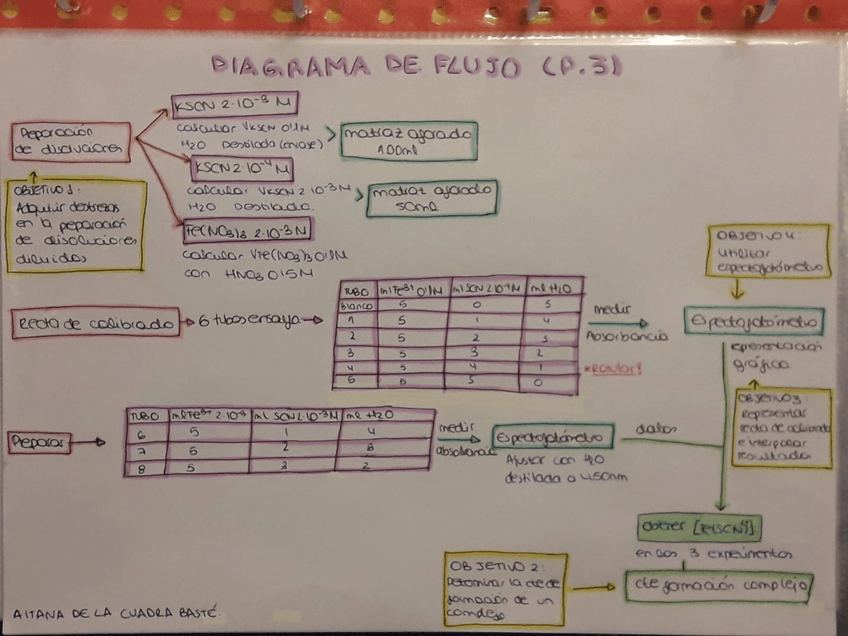 DIAGRAMA DE FLUJO (P.3)
Preparación
de disoluciones
KSCN 2·10⁻³ M
calcular VKSCN 0'1M
H2O Destilada (enrase)
matraz aforado
100ml
KSCN 2·10⁻⁴ M
calcular VKSCN 2·10⁻³M
H2O Destilada
matraz aforado
50ml
Fe(NO3)3 2·10⁻³ M
calcular VFe(NO3)3 0'1M
con HNO3 0'5M
OBJETIVO 1:
Adquirir destrezas
en la preparación
de disoluciones
diluidas
Recta de calibrado
6 tubos ensayo
TUBO ml Fe³⁺ 0'1M ml SCN 2·10⁻⁴M ml H2O
Blanco 5 0 5
1 5 1 4
2 5 2 3
3 5 3 2
4 5 4 1
5 5 5 0
medir
Absorbancia
Espectofotómetro
OBJETIVO 4:
utilizar
espectofotómetro
representación
gráfica
OBJETIVO 3:
Representar
recta de calibrado
e interpolar
resultados
Preparar
TUBO ml Fe³⁺ 2·10⁻³ ml SCN 2·10⁻³M ml H2O
6 5 1 4
7 5 2 3
8 5 3 2
medir
absorbancia
Espectofotómetro
Ajustar con H2O
destilada a 450nm
datos
obtener
en los 3 experimentos
cte formación complejo
OBJETIVO 2:
Determinar la cte de
formación de un
complejo
AITANA DE LA CUADRA BASTÉ.